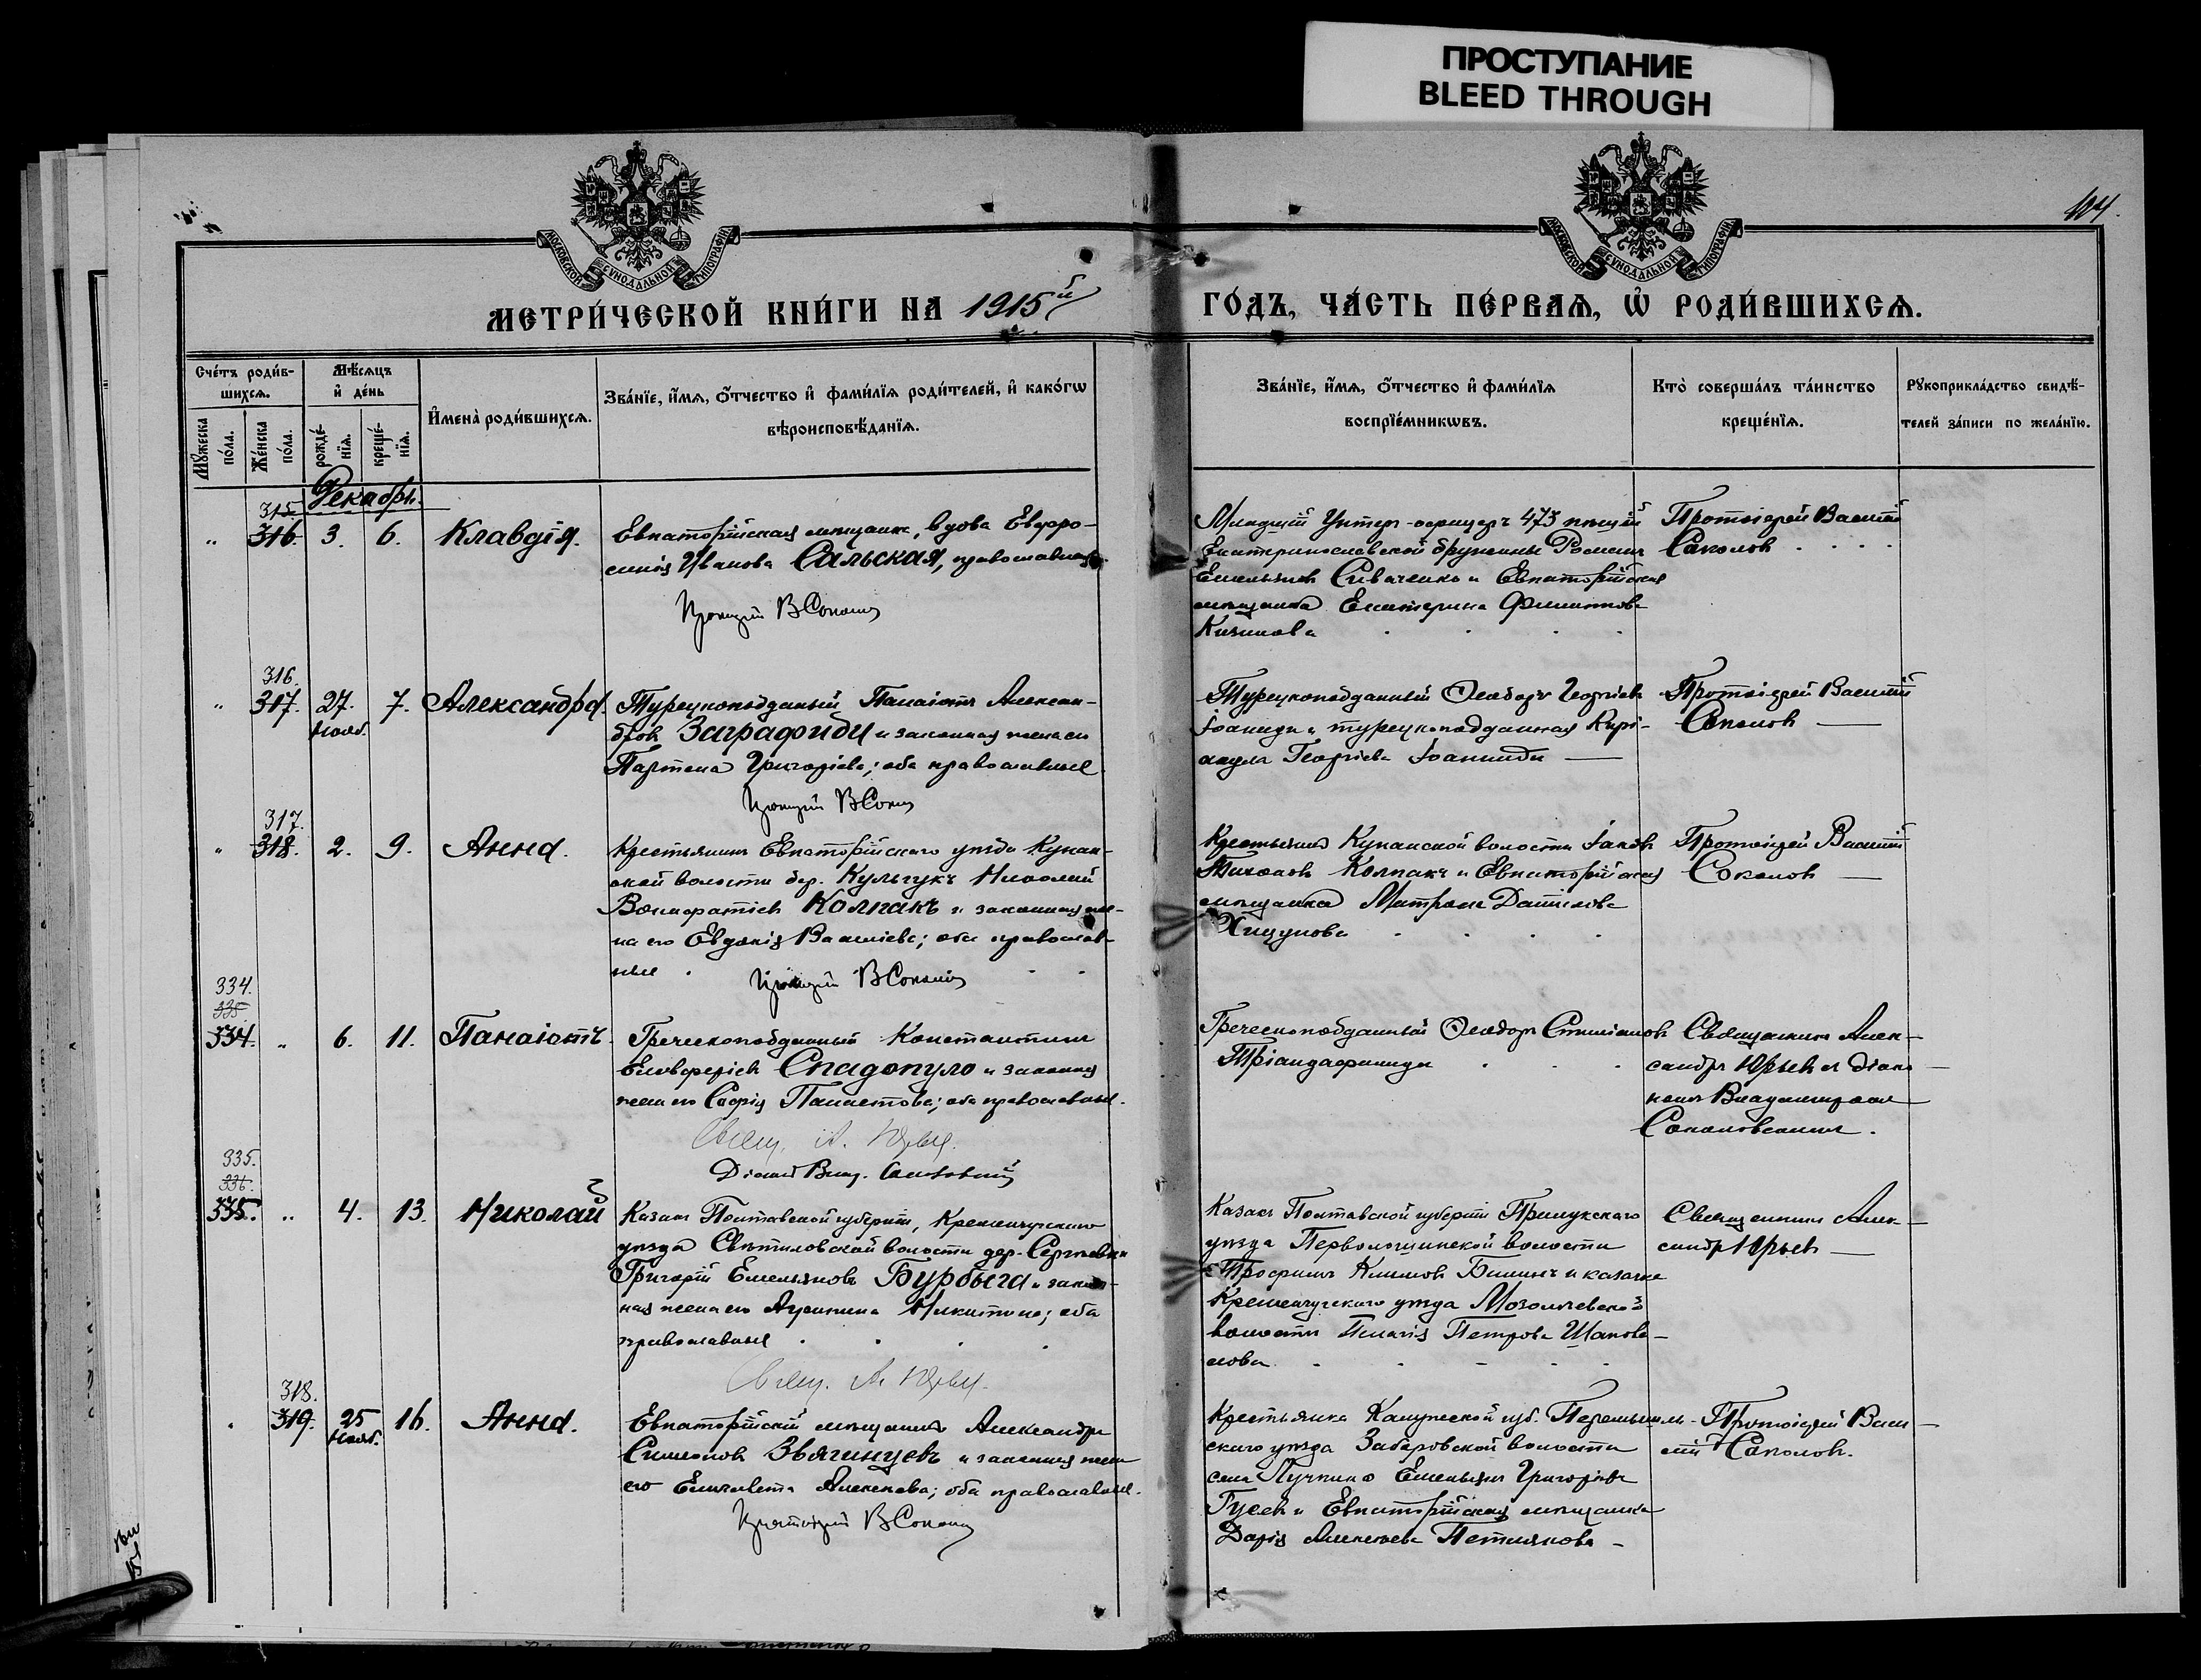 ПРОСТУПАНИЕ
BLEED THROUGH
104.
МОСКОВСКОЙ СУНОДАЛЬНОЙ ТИПОГРАФІИ
МОСКОВСКОЙ СУНОДАЛЬНОЙ ТИПОГРАФІИ
МЕТРИ́ЧЕСКОЙ КНИ́ГИ НА 1915й
ГО́ДЪ, ЧА́СТЬ ПЕ́РВАѦ, Ѡ҆ РОДИ́ВШИХСѦ.
Сче́тъ роди́в-
шихсѧ.
Мꙋ́жеска по́ла.
Же́нска по́ла.
Мѣ́сѧцъ
и҆ де́нь
рожде́-
нїѧ.
креще́-
нїѧ.
И҆мена̀ роди́вшихсѧ.
Зва́нїе, и҆́мѧ, ѻ҆́тчество и҆ фами́лїѧ роди́телей, и҆ како́гѡ
вѣроисповѣ́данїѧ.
Зва́нїе, и҆́мѧ, ѻ҆́тчество и҆ фами́лїѧ
воспрїе́мникѡвъ.
Кто̀ соверша́лъ та́инство
креще́нїѧ.
Рꙋкоприкла́дство свидѣ́-
телей за́писи по жела́нїю.
Декабрь.
315.
„ 316. 3. 6. Клавдія.
Евпаторійская мѣщанка, вдова Евфро-
синія Иванова Сальская, православная
Протоіерей В Соколов
Младшій Унтеръ-офицеръ 473 пѣшей
Екатеринославской дружины Роман
Емельянов Сиваченко и Евпаторійская
мѣщанка Екатерина Филиппова
Протоіерей Василій
Соколов
316.
„ 317. 27. Нояб. 7. Александра.
Турецкоподданый Панаіотъ Алексан-
дров Заграфиди и законная жена его
Партена Григоріева; оба православные
Протоіерей В Соколов
Турецкоподданый Ѳеодоръ Георгіев
Іоаниди и турецкоподданная Кирі-
акула Георгіева Іоанниди
Протоіерей Василій
Соколов
317.
„ 318. 2. 9. Анна.
Крестьянинъ Евпаторійскаго уѣзда Кунан-
ской волости дер. Кульчукъ Николай
Вонифатіев Колпакъ и законная же-
на его Евдокія Васильева; оба православ-
ные
Протоіерей В Соколов
Крестьянин Кунанской волости Іаков
Тихонов Колпакъ и Евпаторійская
мѣщанка Матрона Данилова
Хицунова
Протоіерей Василій
Соколов
334.
335.
334. „ 6. 11. Панаіотъ.
Греческоподданный Константинъ
Елевферіев Спадопуло и законная
жена его Софія Панаетова; оба православные.
Свящ. А. Юрьев.
Діакон Влад.
Греческоподданный Ѳеодоръ Стиліанов
Тріандафилиди
Священникъ Алек-
сандр Юрьев с діако-
номъ Владимиромъ
335.
336.
335. „ 4. 13. Николай
Казакъ Полтавской губерніи, Кременчугскаго
уѣзда волости дер. Сергѣевки
Григорій Емельяновъ Бурбыга и закон-
ная жена его Никитина; оба
православные
Свящ. А. Юрьев.
Казакъ Полтавской губерніи Прилукскаго
уѣзда волости
Трофимъ Климов и казачка
Кременчугскаго уѣзда
волости Пелагія Петрова Шапова-
лова
Священникъ Алек-
сандр Юрьев
318.
319. 25 Нояб. 16. Анна.
Евпаторійскій мѣщанинъ Александръ
Симеонов Звягинцевъ и законная жена
его Елисавета Алексеева; оба православные.
Протоіерей В Соколов
Крестьянинъ Калужской губ. Перемышль-
скаго уѣзда Забаровской волости
села Лучкино Емельянъ Григорьев
Гусев и Евпаторійская мѣщанка
Дарія Алексеева Петлякова
Протоіерей Васи-
лій Соколов.